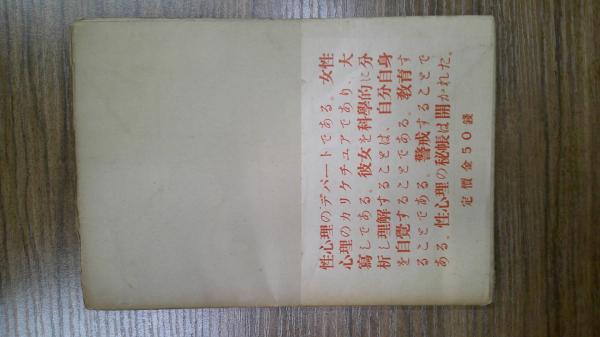 性心理のデパートである。女性
心理のカリケチュアであり、大
寫しである。彼女を科學的に分
析し理解することは、自分自身
を自覺することである。敎育す
ることである。警戒することで
ある。性心理の秘帳は開かれた。
定價金50錢